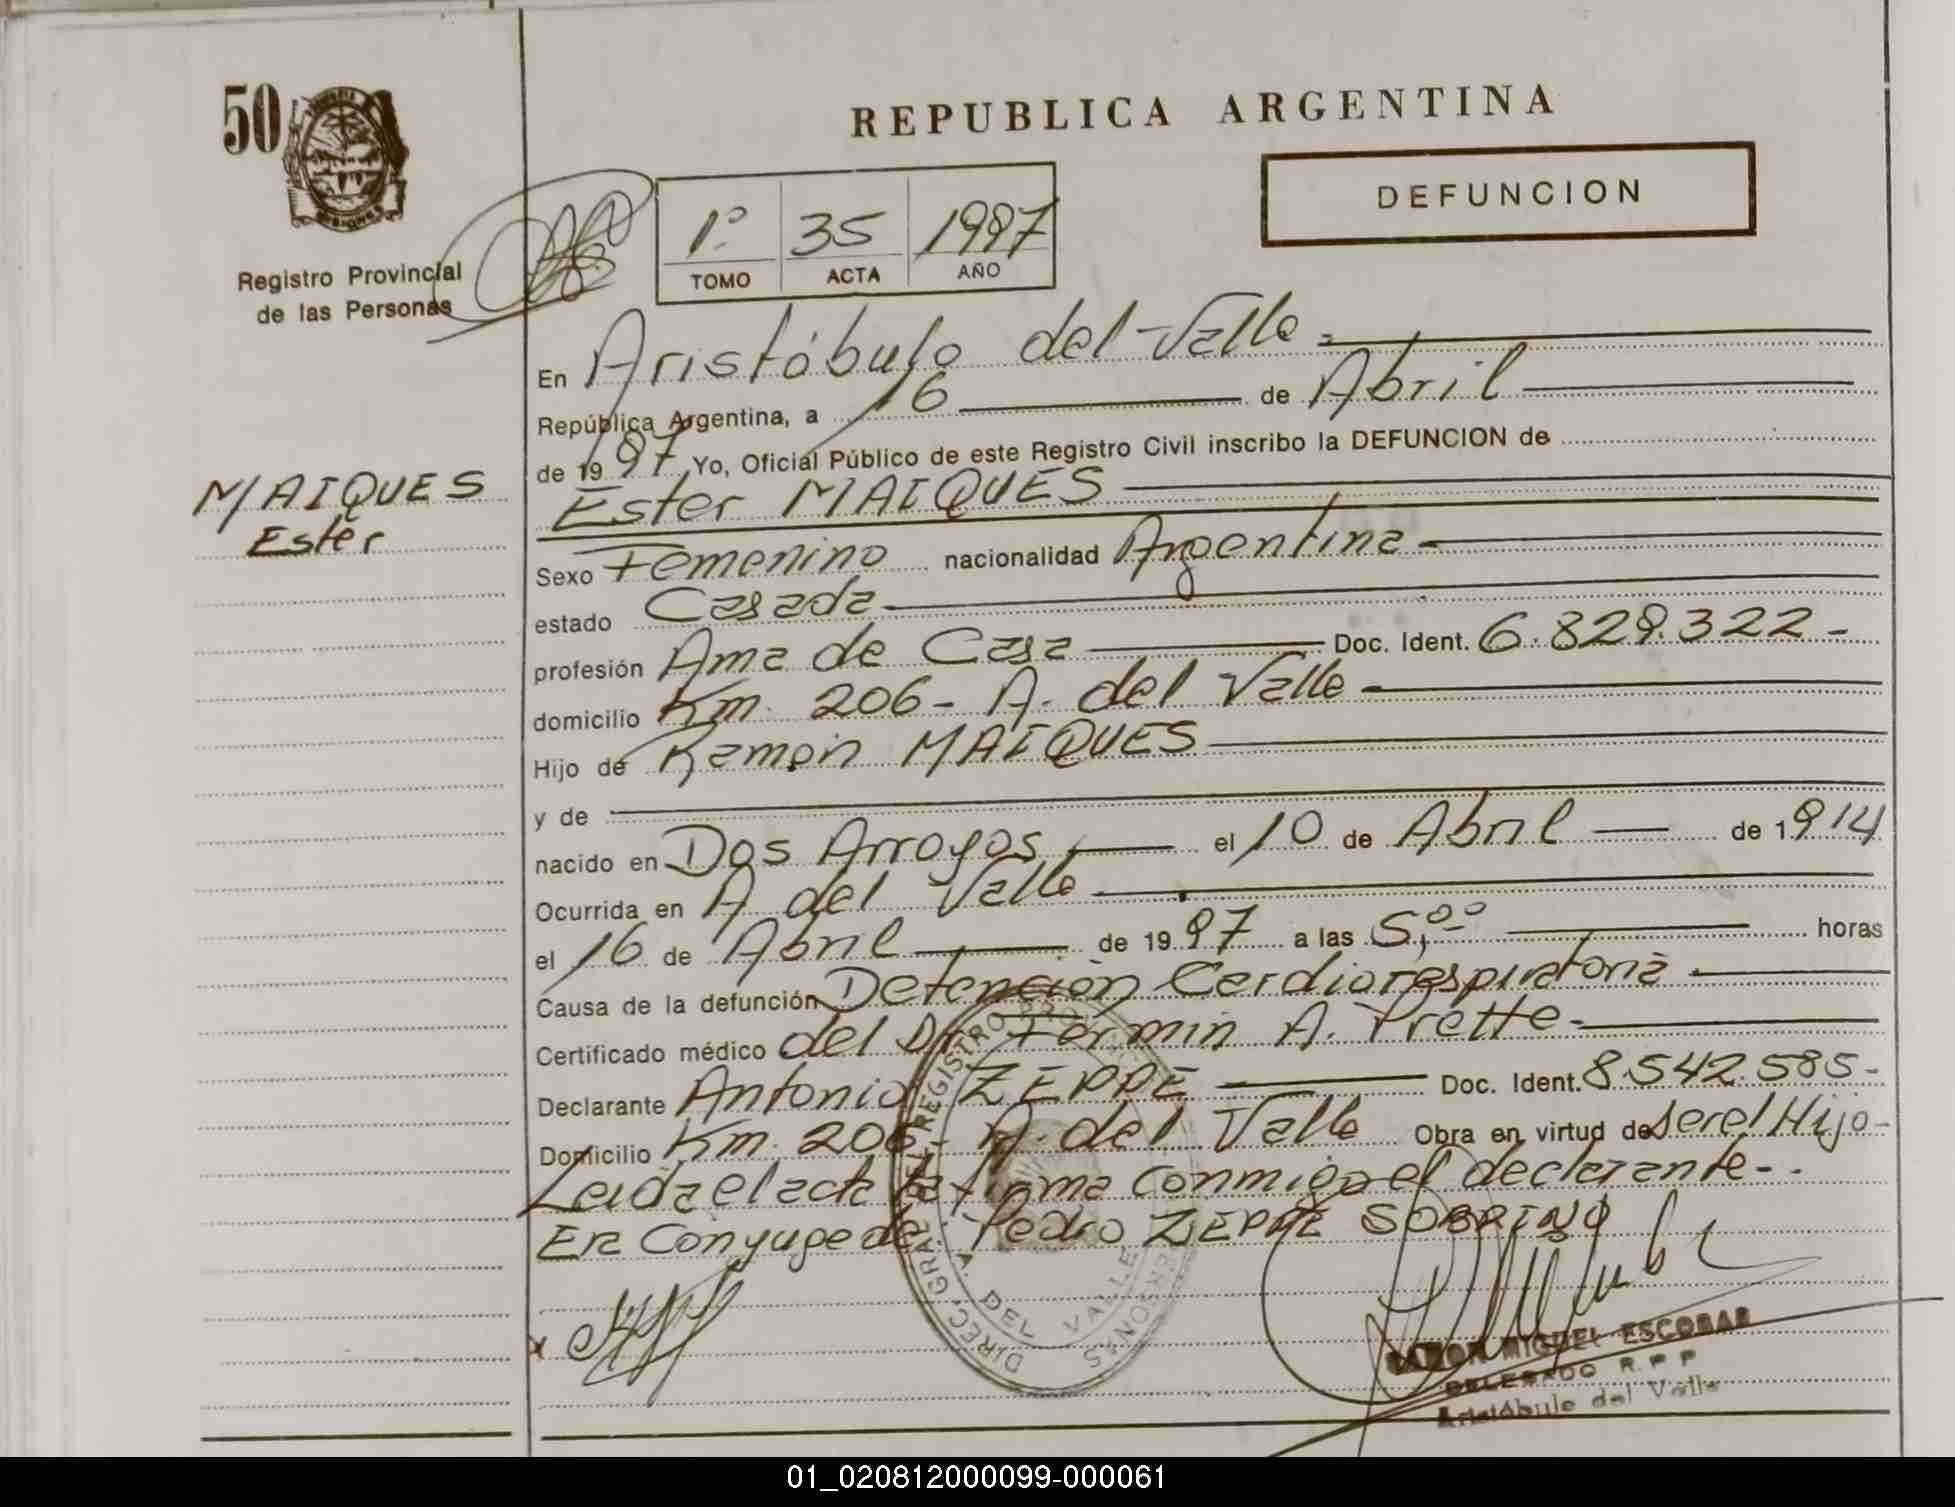 50
REPUBLICA ARGENTINA
DEFUNCION
Registro Provincial
de las Personas
1º 35 1997
TOMO ACTA AÑO
En Aristóbulo del Valle
República Argentina, a 16 de Abril
de 1997 Yo, Oficial Público de este Registro Civil inscribo la DEFUNCION de
MAIQUES
Ester
Ester MAIQUES
Sexo Femenino nacionalidad Argentina
estado Casada
profesión Ama de Casa Doc. Ident. 6.829.322-
domicilio Km. 206- A. del Valle
Hijo de Ramón MAIQUES
y de
nacido en Dos Arroyos el 10 de Abril de 1914
Ocurrida en A del Valle
el 16 de Abril de 1997 a las 5,ºº horas
Causa de la defunción Detención Cardiorespiratoria
Certificado médico del Dr. Fermin A. Prette-
Declarante Antonio ZEPPE Doc. Ident. 8.542.585-
Domicilio Km. 206- A. del Valle Obra en virtud de ser el Hijo-
Leida el acta la firma conmigo el declarante-.
Era Conyuge de Pedro ZEPPE SOBRINO
DIREC. GRAL. DEL REGISTRO PERSONAS
A. DEL VALLE
RAMON MIGUEL ESCOBAR
DELEGADO R. P. P.
Aristóbulo del Valle
01_020812000099-000061